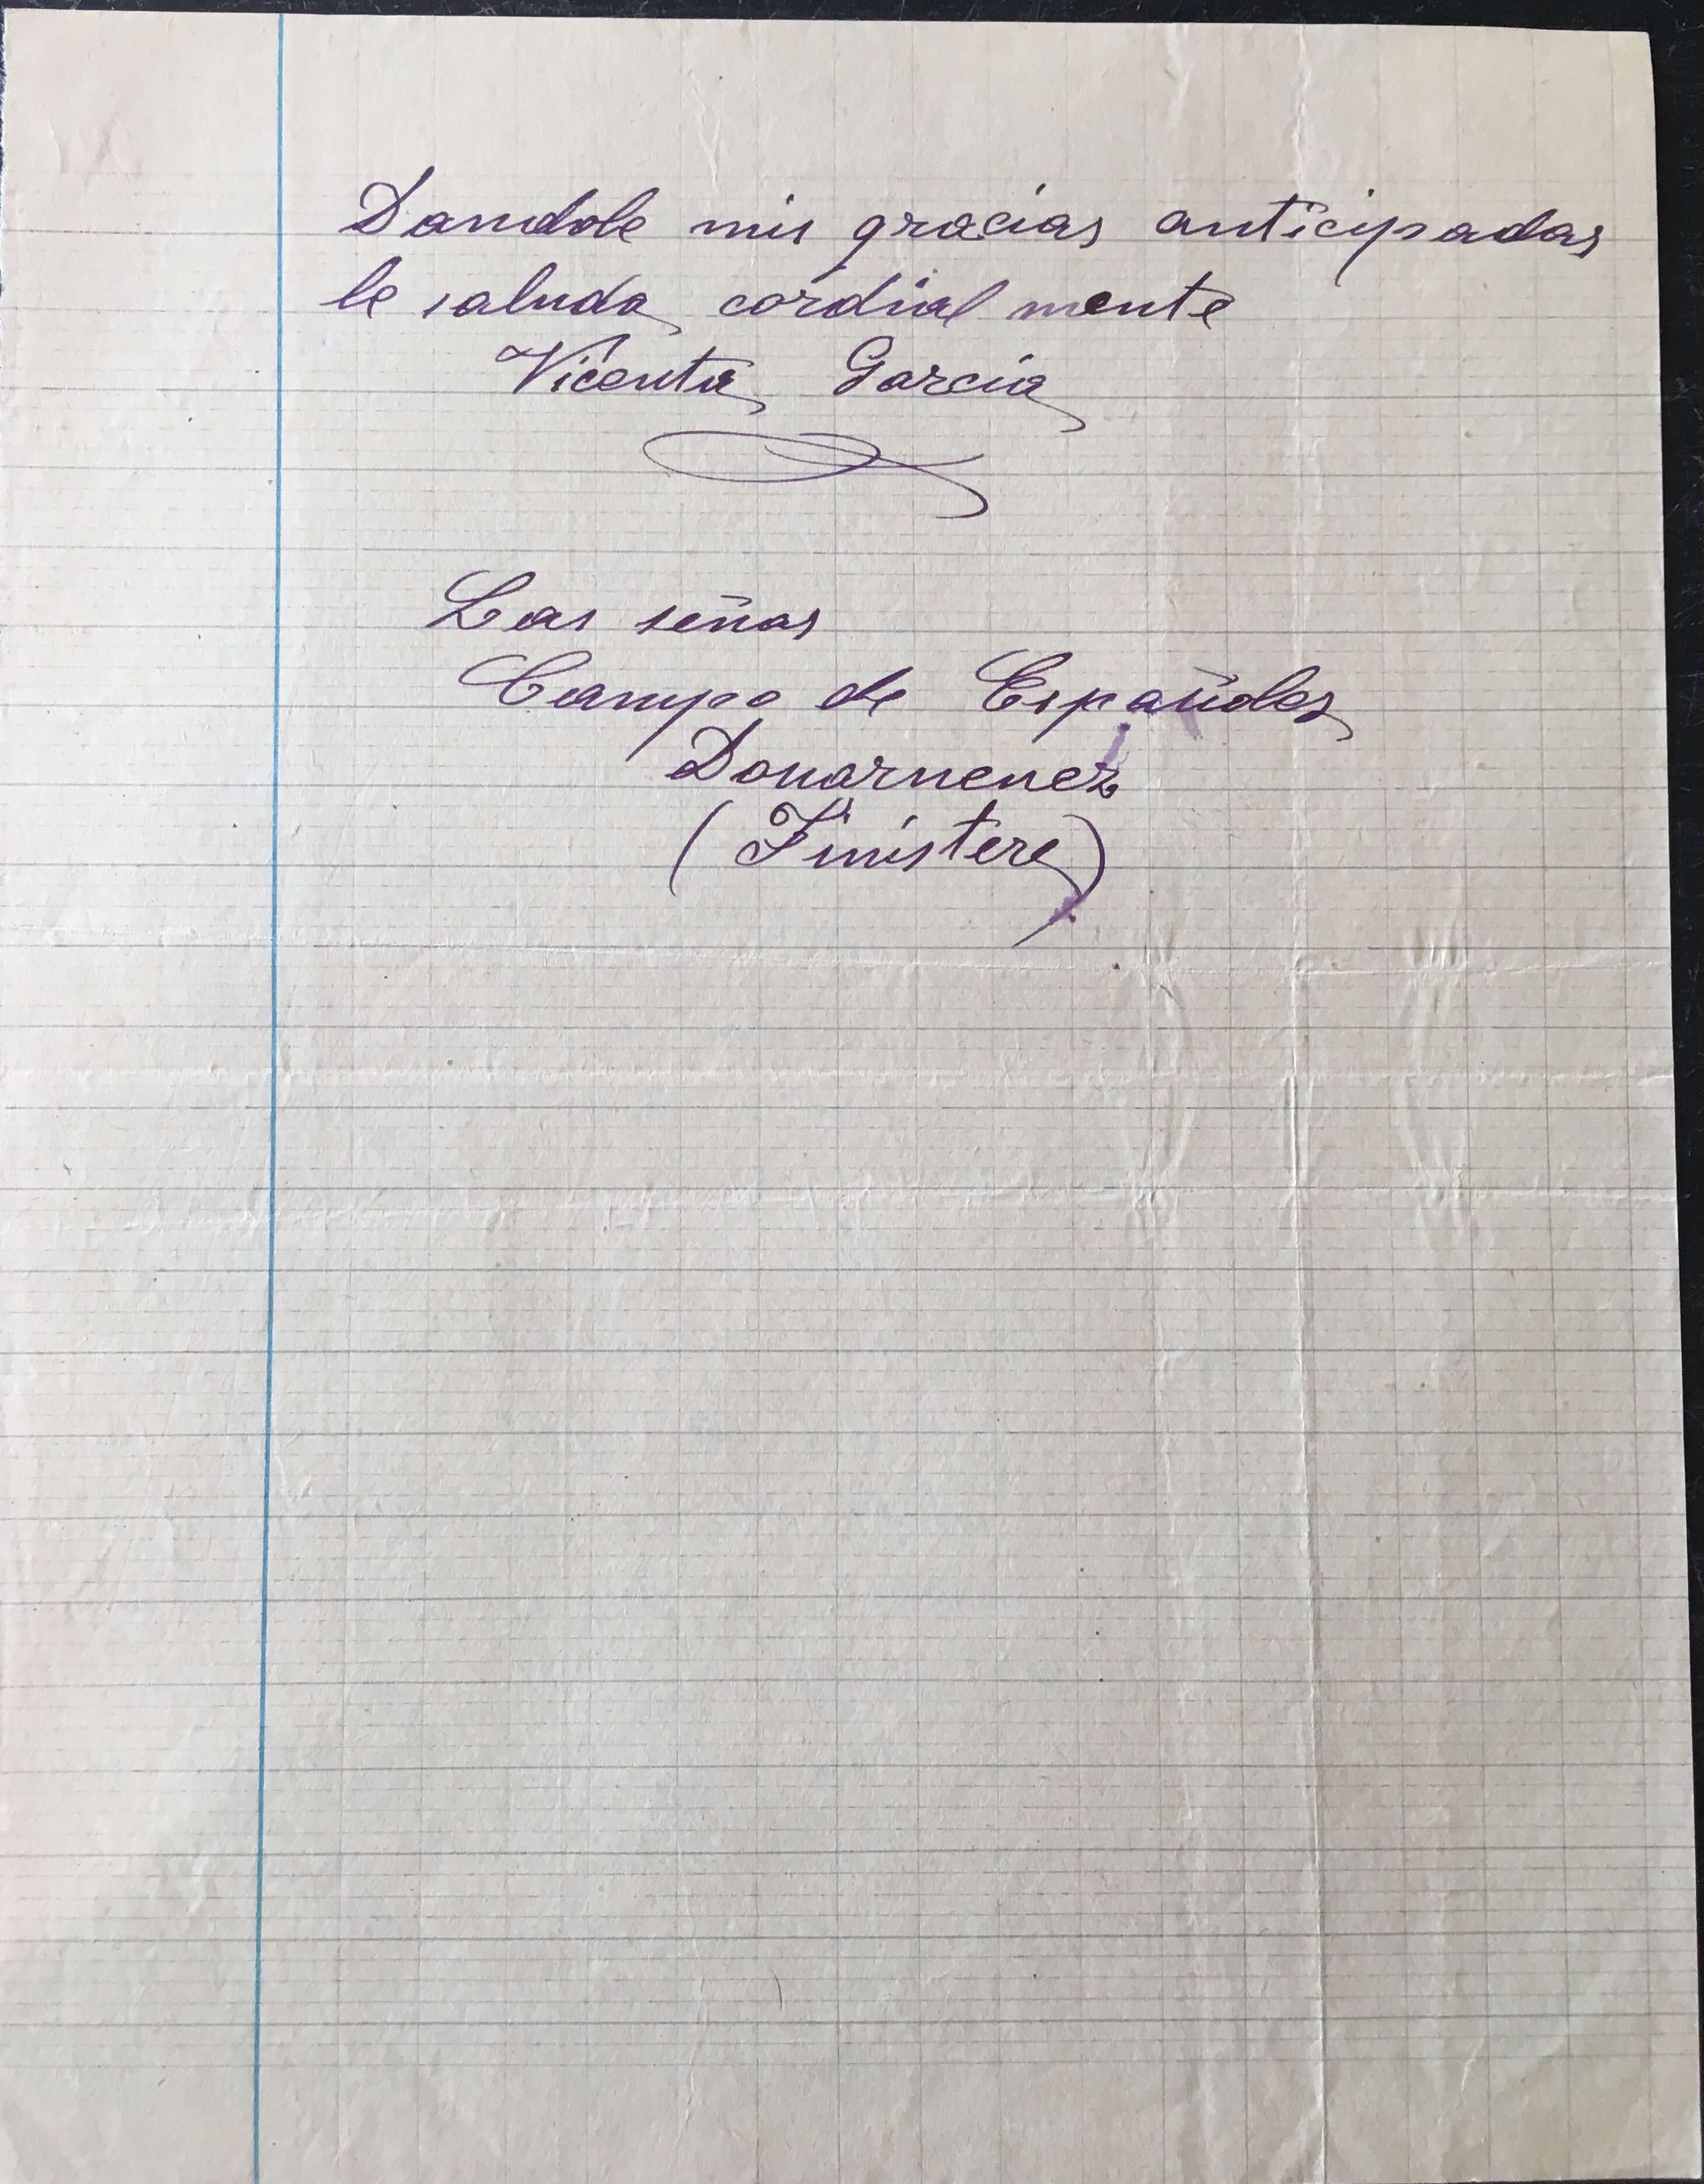 Dandole mis gracias anticipadas
le saluda cordial mente
Vicenta Garcia
Las señas
Campo de Españoles
Douarnenez
(Finistere)